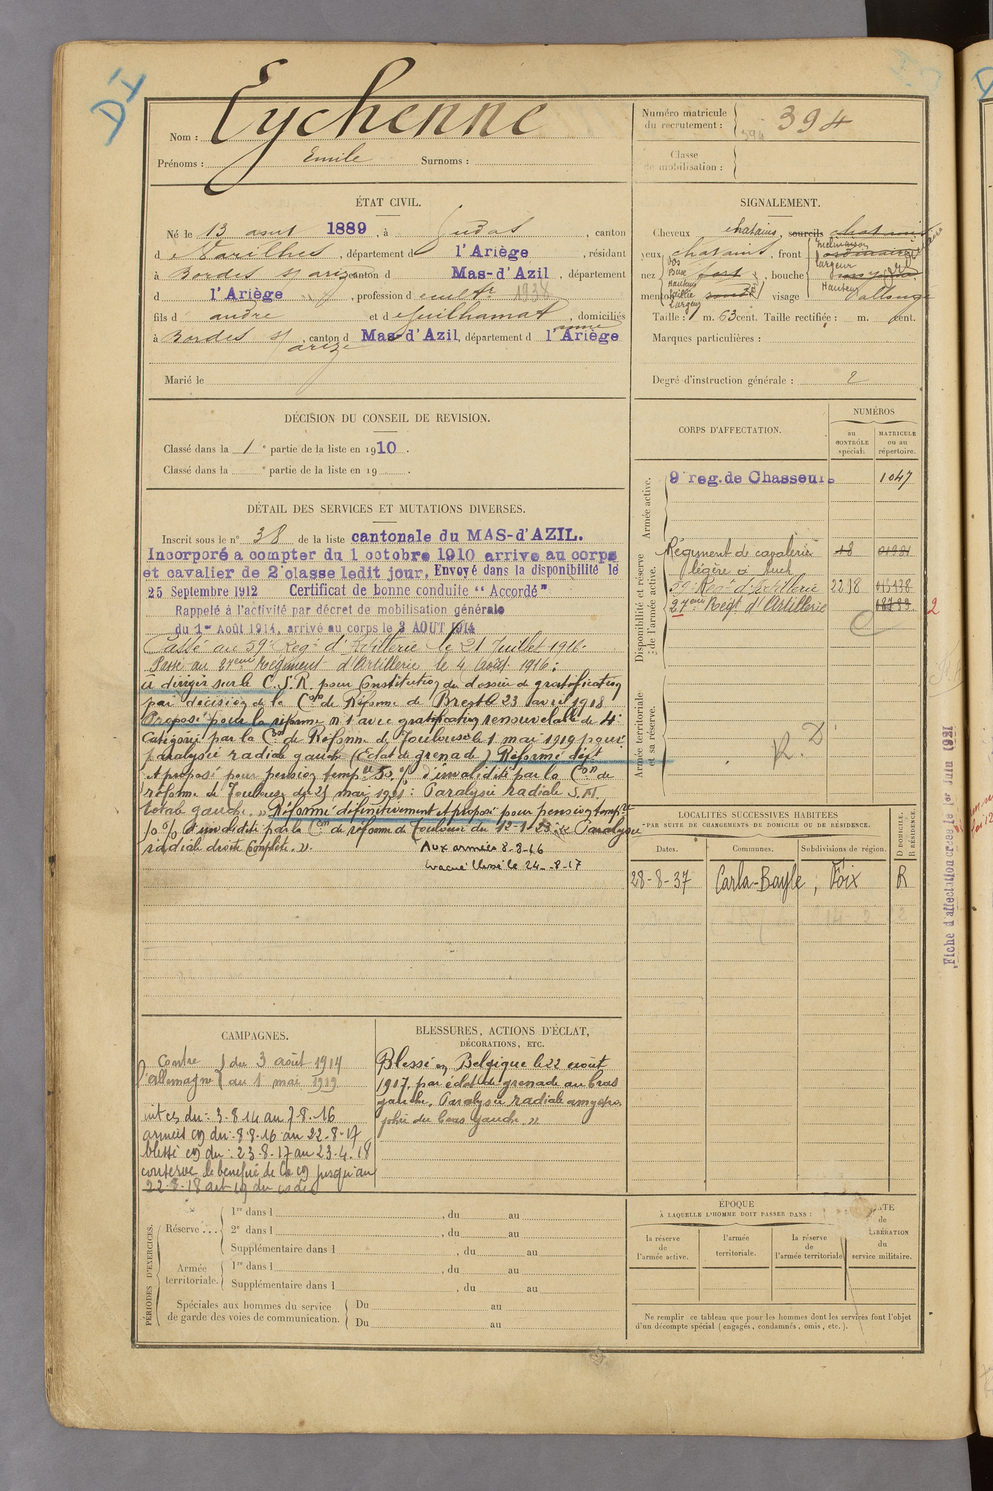 DI
Nom : Eychenne
Prénoms : Emile Surnoms :
Numéro matricule du recrutement : 394
394
Classe de mobilisation :
ÉTAT CIVIL.
Né le 13 aout 1889, à Gudas, canton
d Varilhes, département d l'Ariège, résidant
à Bordes s/ arize canton d Mas-d'Azil, département
d l'Ariège, profession d cultr 1938
fils d andré et d Guilhamat, domiciliés
à Bordes s/ arize, canton d Mas-d'Azil, département d l'Ariège
Marié le
SIGNALEMENT.
Cheveux chatains, sourcils chatains
yeux chatains, front
nez, bouche
menton, visage
Taille : 1 m. 63 cent. Taille rectifiée : m. cent.
Marques particulières :
Degré d'instruction générale : 2
DÉCISION DU CONSEIL DE REVISION.
Classé dans la 1e partie de la liste en 1910.
Classé dans la e partie de la liste en 19 .
DÉTAIL DES SERVICES ET MUTATIONS DIVERSES.
Inscrit sous le n° 38 de la liste cantonale du MAS-d'AZIL.
Incorporé a compter du 1 octobre 1910 arrive au corps
et cavalier de 2e classe ledit jour. Envoyé dans la disponibilité le
25 Septembre 1912 Certificat de bonne conduite "Accordé"
Rappelé à l'activité par décret de mobilisation générale
du 1er Août 1914, arrivé au corps le 3 AOUT 1914
Passé au 59e Regt d'Artillerie le 21 Juillet 1916.
Passé au 27eme Regiment d'Artillerie le 4 Août 1916 ;
à diriger sur le C.S.R. pour Constitution du dossier de gratification
par décision de la Con de Réforme de Brest le 23 avril 1918
Proposé pour la réforme n° 1 avec gratification renouvelable de 4e
Catégorie par la Con de Réforme de Toulouse le 1 mai 1919 pour
paralysie radiale gauche (Eclat de grenade) Réformé déft
et proposé pour pension tempre 50 % d'invalidité par la Con de
réforme de Toulouse du 25 mai 1921 : Paralysie radiale
totale gauche. » Réformé définitivement et proposé pour pension tempre
% d'invalidité par la Con de réforme de Toulouse du 12-1-23 « Paralysie
radiale droite Complète. ».
Aux armées 8-8-16
évacué blessé le 24-8-17
CORPS D'AFFECTATION.
NUMÉROS
au CONTRÔLE spécial.
MATRICULE ou au répertoire.
Armée active.
9e reg. de Chasseurs 1047
Disponibilité et réserve de l'armée active.
Régiment de cavalerie
légère à Auch
59e Regt d'Artillerie 2218
27eme Regt d'Artillerie
Armée territoriale et sa réserve.
R. D.
LOCALITÉS SUCCESSIVES HABITÉES
PAR SUITE DE CHANGEMENTS DE DOMICILE OU DE RÉSIDENCE.
Dates. Communes. Subdivisions de région. D DOMICILE. R RÉSIDENCE.
28-8-37 Carla-Bayle, Foix R
Fiche d'affectation créée le 1er Juin 1921
CAMPAGNES.
Contre l'allemagne du 3 août 1914
au 1 mai 1919
int cs du : 3-8-14 au 7-8-16
armées cg du : 8-8-16 au 22-8-17
blessé cg du : 23-8-17 au 23-4-18
conserve le bénéfice de la cg jusqu'au
22-8-18
BLESSURES, ACTIONS D'ÉCLAT,
DÉCORATIONS, ETC.
Blessé en Belgique le 22 août
1917, par éclat de grenade au bras
gauche. Paralysie radiale amyotro
phie du bras gauche »
PÉRIODES D'EXERCICES.
Réserve...
1re dans l , du au
2e dans l , du au
Supplémentaire dans l , du au
Armée territoriale.
1re dans l , du au
Supplémentaire dans l , du au
Spéciales aux hommes du service de garde des voies de communication.
Du au
Du au
ÉPOQUE
À LAQUELLE L'HOMME DOIT PASSER DANS :
la réserve de l'armée active.
l'armée territoriale.
la réserve de l'armée territoriale
DATE de LIBÉRATION du service militaire.
Ne remplir ce tableau que pour les hommes dont les services font l'objet
d'un décompte spécial (engagés, condamnés, omis, etc.).